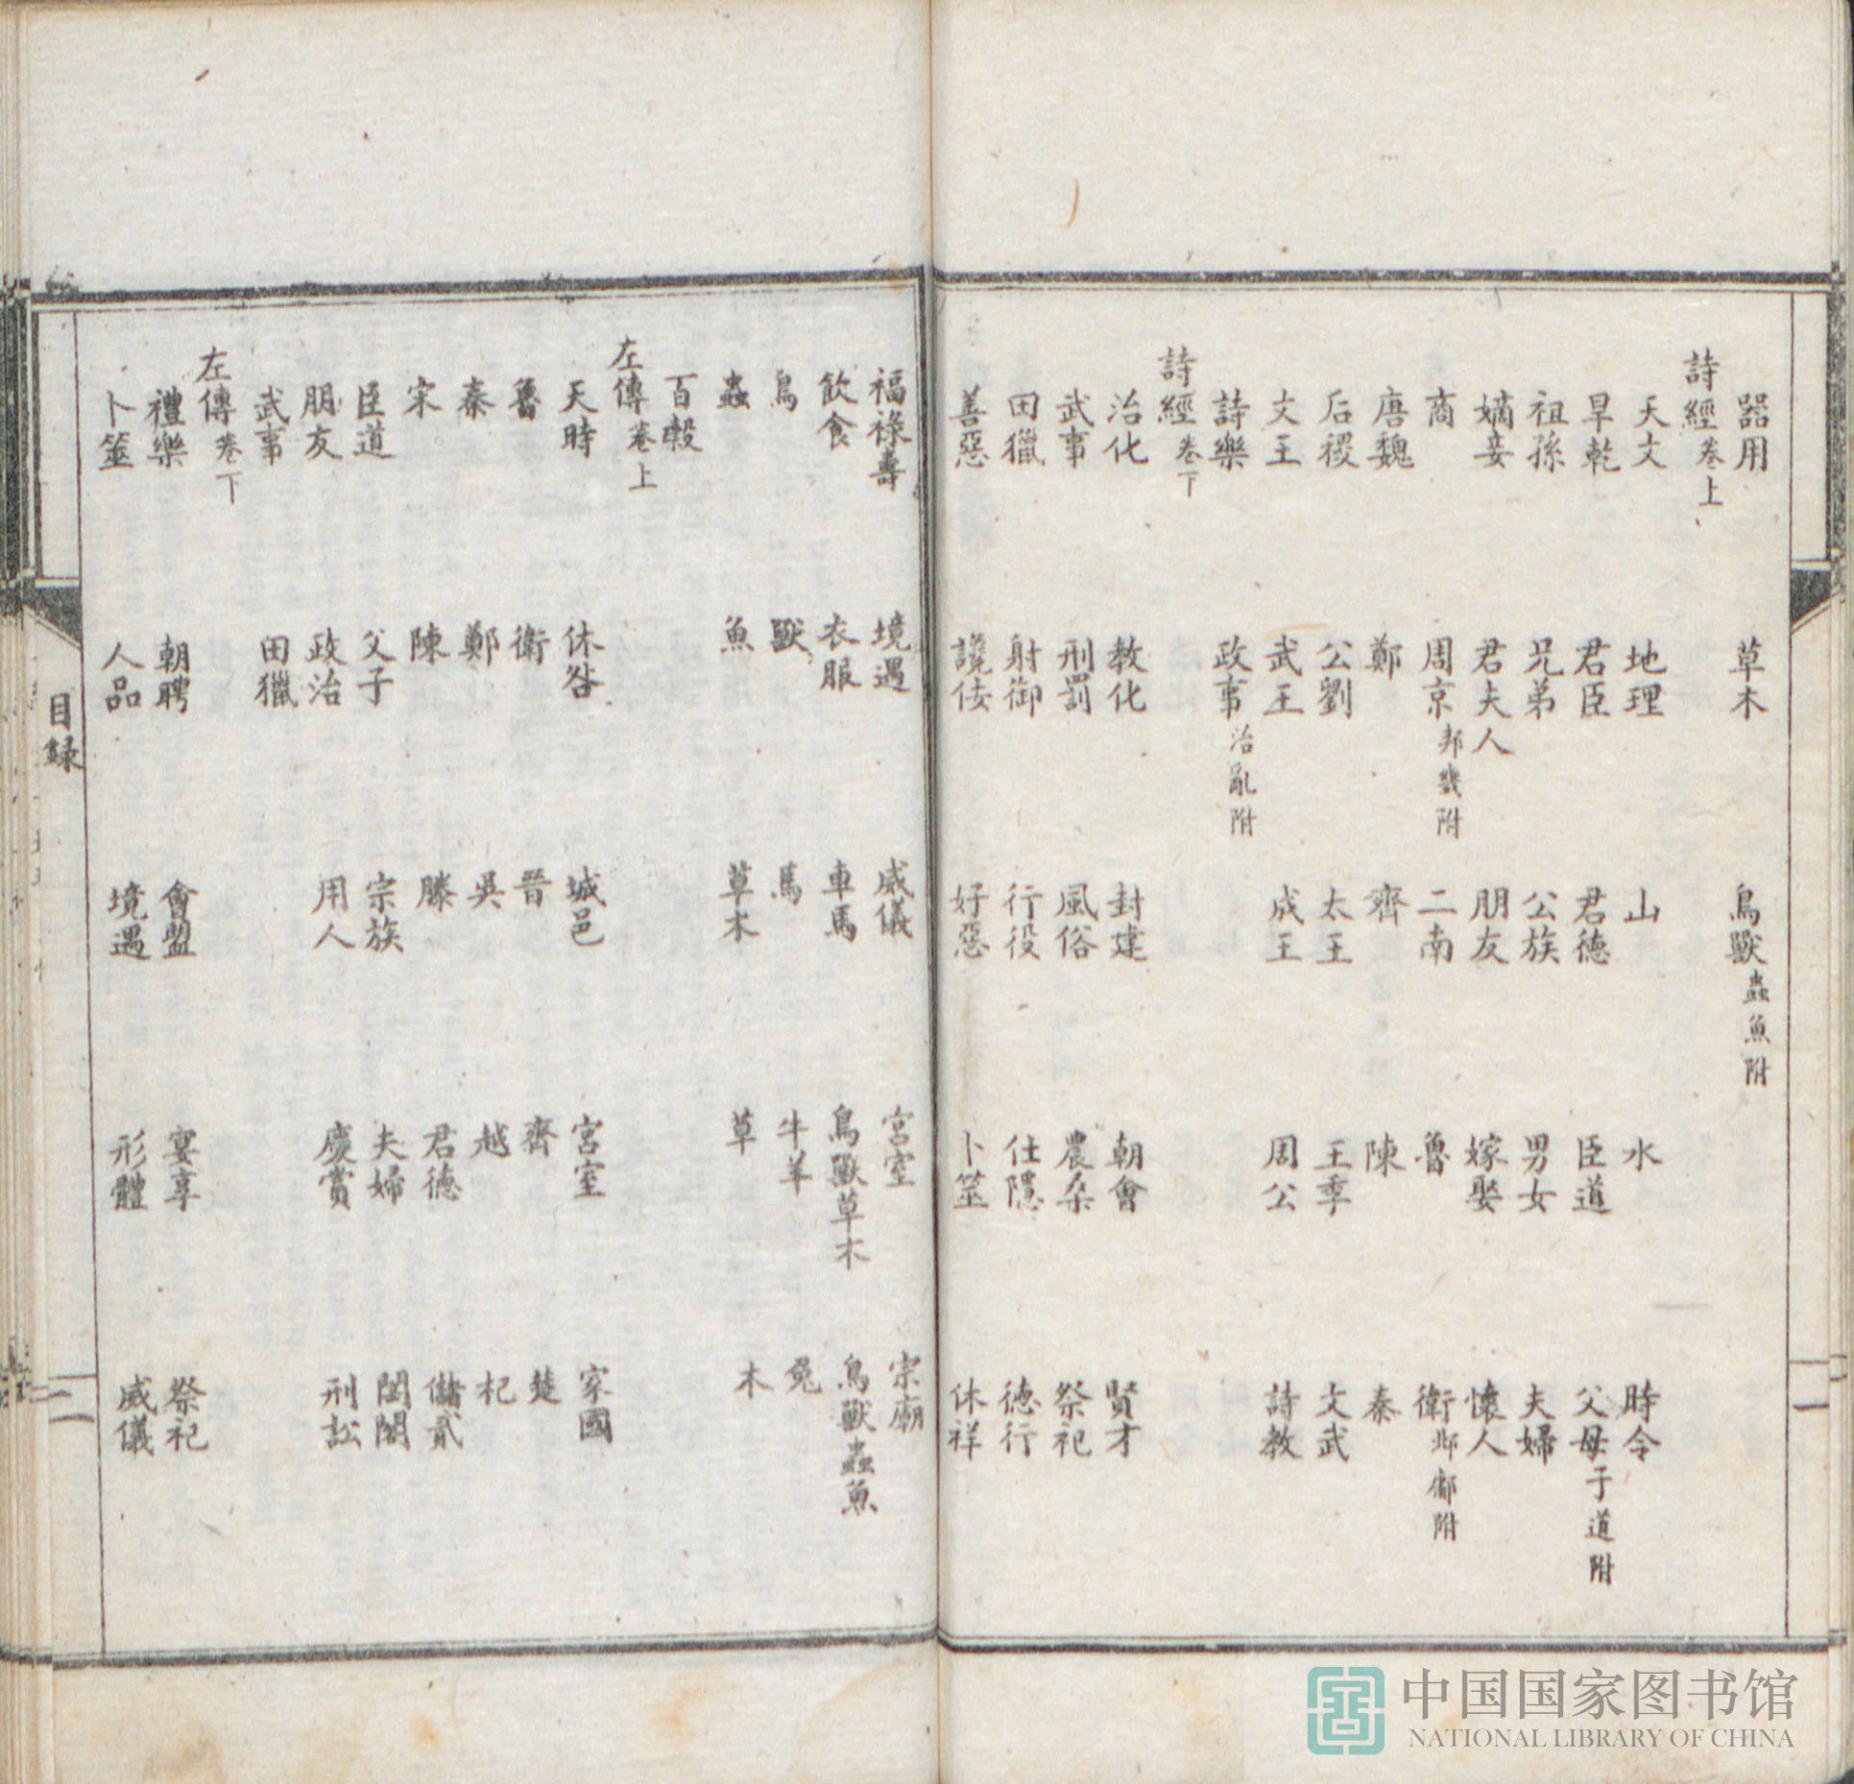 器用 草木 鳥獸蟲魚附
詩經卷上
天文 地理 山 水 時令
旱乾 君臣 君德 臣道 父母子道附
祖孫 兄弟 公族 男女 夫婦
嫡妾 君夫人 朋友 嫁娶 懷人
商 周京邦畿附 二南 魯 衛邶鄘附
唐魏 鄭 齊 陳 秦
后稷 公劉 太王 王季 文武
文王 武王 成王 周公 詩教
詩樂 政事治亂附
詩經卷下
治化 教化 封建 朝會 賢才
武事 刑罰 風俗 農桑 祭祀
田獵 射御 行役 仕隱 德行
善惡 讒佞 好惡 卜筮 休祥
一
福祿壽 境遇 威儀 宮室 宗廟
飲食 衣服 車馬 鳥獸草木 鳥獸蟲魚
鳥 獸 馬 牛羊 兔
蟲 魚 草木 草 木
百穀
左傳卷上
天時 休咎 城邑 宮室 家國
魯 衛 晉 齊 楚
秦 鄭 吳 越 杞
宋 陳 滕 君德 儲貳
臣道 父子 宗族 夫婦 閨閫
朋友 政治 用人 慶賞 刑訟
武事 田獵
左傳卷下
禮樂 朝聘 會盟 宴享 祭祀
卜筮 人品 境遇 形體 威儀
目録
二
中国国家图书馆
NATIONAL LIBRARY OF CHINA